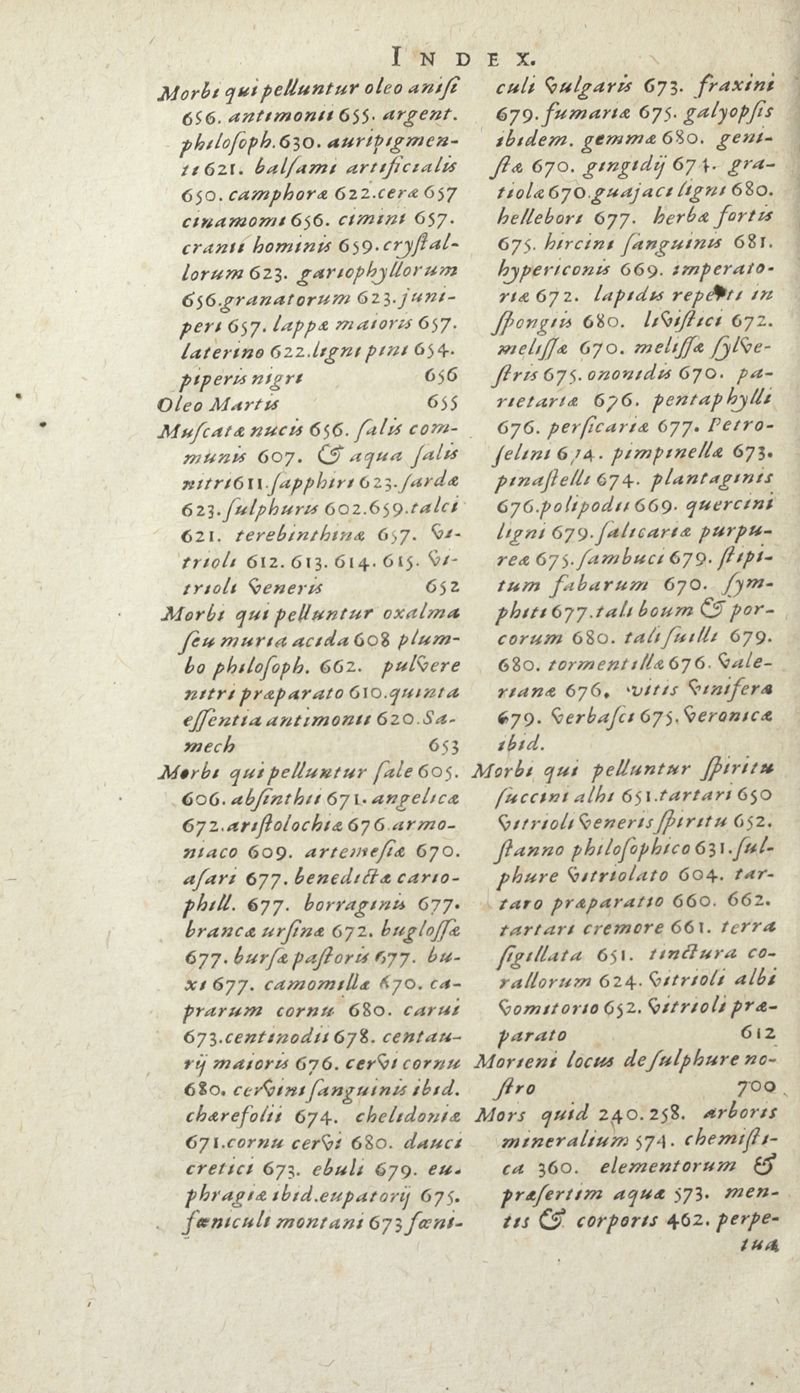 INDEX.
Morbi qui pelluntur oleo antiſi
656. antimonii 655. argent.
philoſoph. 630. auripigmen-
ti 621. balſami artificialis
650. camphoræ 622. ceræ 657
cinamomi 656. cimini 657.
cranii hominis 659. cryſtal-
lorum 623. gariophyllorum
656. granatorum 623. juni-
peri 657. lappæ maioris 657.
laterino 622. ligni pini 654.
piperis nigri 656
Oleo Martis 655
Muſcatæ nucis 656. ſalis com-
munis 607. & aqua ſalis
nitri 611. ſapphiri 623. ſardæ
623. ſulphuris 602. 659. talci
621. terebinthinæ 657. vi-
trioli 612. 613. 614. 615. vi-
trioli veneris 652
Morbi qui pelluntur oxalma
ſeu muria acida 608 plum-
bo philoſoph. 662. pulvere
nitri præparato 610. quinta
eſſentia antimonii 620. Sa-
mech 653
Morbi qui pelluntur ſale 605.
606. abſinthii 671. angelicæ
672. ariſtolochiæ 676. armo-
niaco 609. artemeſiæ 670.
aſari 677. benedictæ cario-
phill. 677. borraginis 677.
brancæ urſinæ 672. bugloſſæ
677. burſæ paſtoris 677. bu-
xi 677. camomillæ 670. ca-
prarum cornu 680. carui
673. centinodii 678. centau-
rij maioris 676. cervi cornu
680. cervini ſanguinis ibid.
chærefolii 674. chelidoniæ
671. cornu cervi 680. dauci
cretici 673. ebuli 679. eu-
phragiæ ibid. eupatorij 675.
fœniculi montani 673 fœni-
culi vulgaris 673. fraxini
679. fumariæ 675. galyopſis
ibidem. gemmæ 680. geni-
ſtæ 670. gingidij 674. gra-
tiolæ 670. guajaci ligni 680.
hellebori 677. herbæ fortis
675. hircini ſanguinis 681.
hypericonis 669. imperato-
riæ 672. lapidis reperti in
ſpongiis 680. liviſtici 672.
meliſſæ 670. meliſſæ ſylve-
ſtris 675. ononidis 670. pa-
rietariæ 676. pentaphylli
676. perſicariæ 677. Petro-
ſelini 674. pimpinellæ 673.
pinaſtelli 674. plantaginis
676. polipodii 669. quercini
ligni 679. ſalicariæ purpu-
reæ 675. ſambuci 679. ſtipi-
tum fabarum 670. ſym-
phiti 677. tali boum & por-
corum 680. tali ſuilli 679.
680. tormentillæ 676. vale-
rianæ 676. vitis viniferæ
679. verbaſci 675. veronicæ
ibid.
Morbi qui pelluntur ſpiritu
ſuccini albi 651. tartari 650
vitrioli veneris ſpiritu 652.
ſtanno philoſophico 631. ſul-
phure vitriolato 604. tar-
taro præparatio 660. 662.
tartari cremore 661. terra
ſigillata 651. tinctura co-
rallorum 624. vitrioli albi
vomitorio 652. vitrioli præ-
parato 612
Morieni locus de ſulphure no-
ſtro 700
Mors quid 240. 258. arboris
mineralium 574. chemiſti-
ca 360. elementorum &
præſertim aquæ 573. men-
tis & corporis 462. perpe-
tua